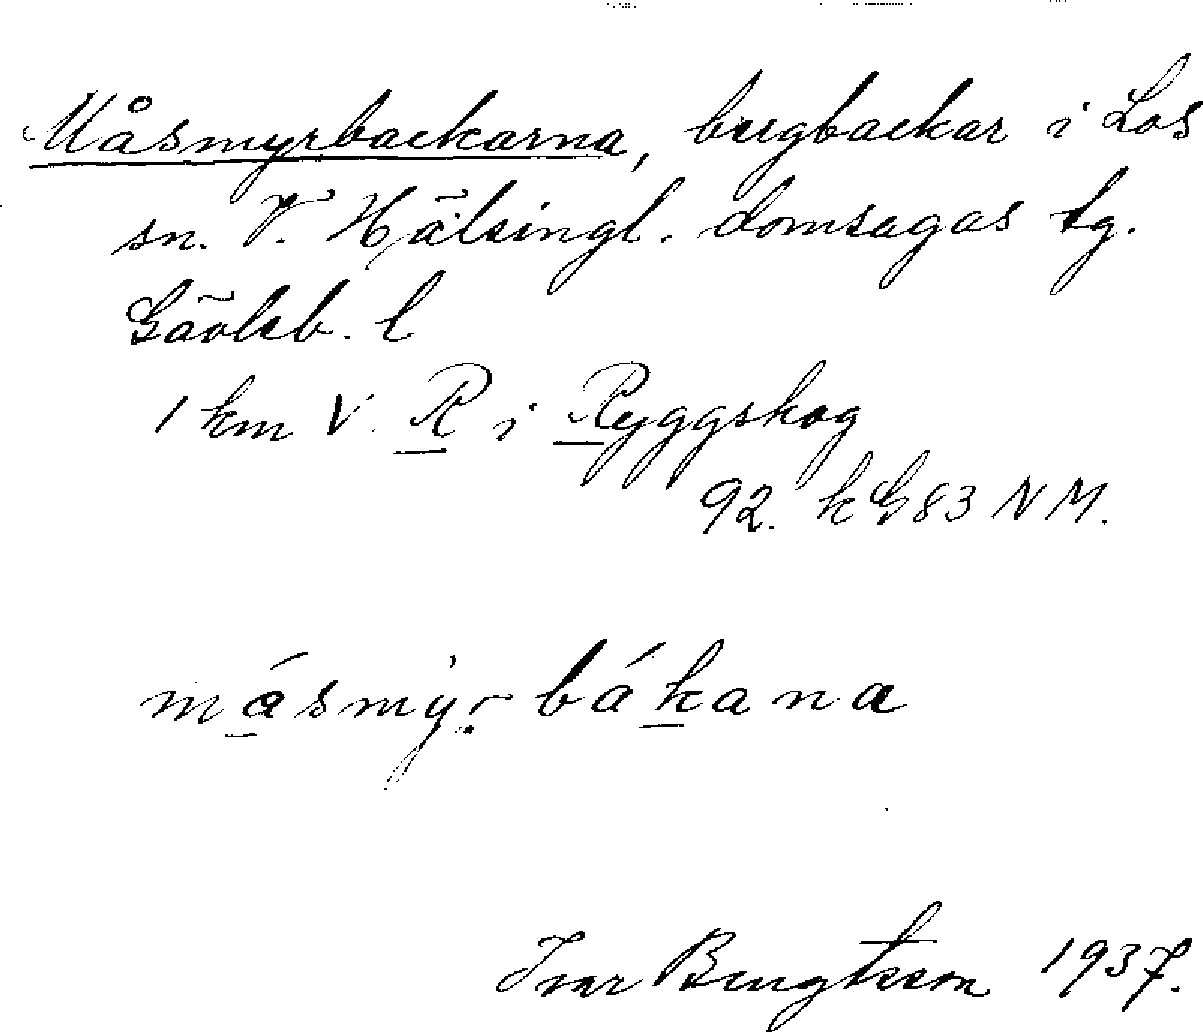 Måsmyrbackarna, bergbackar i Los
sn. V. Hälsingl. domsagas tg.
Gävleb. l
1 km V. R i Ryggskog
92. k G 83 N M.
másmýr bákana
Ivar Bengtsson 1937.